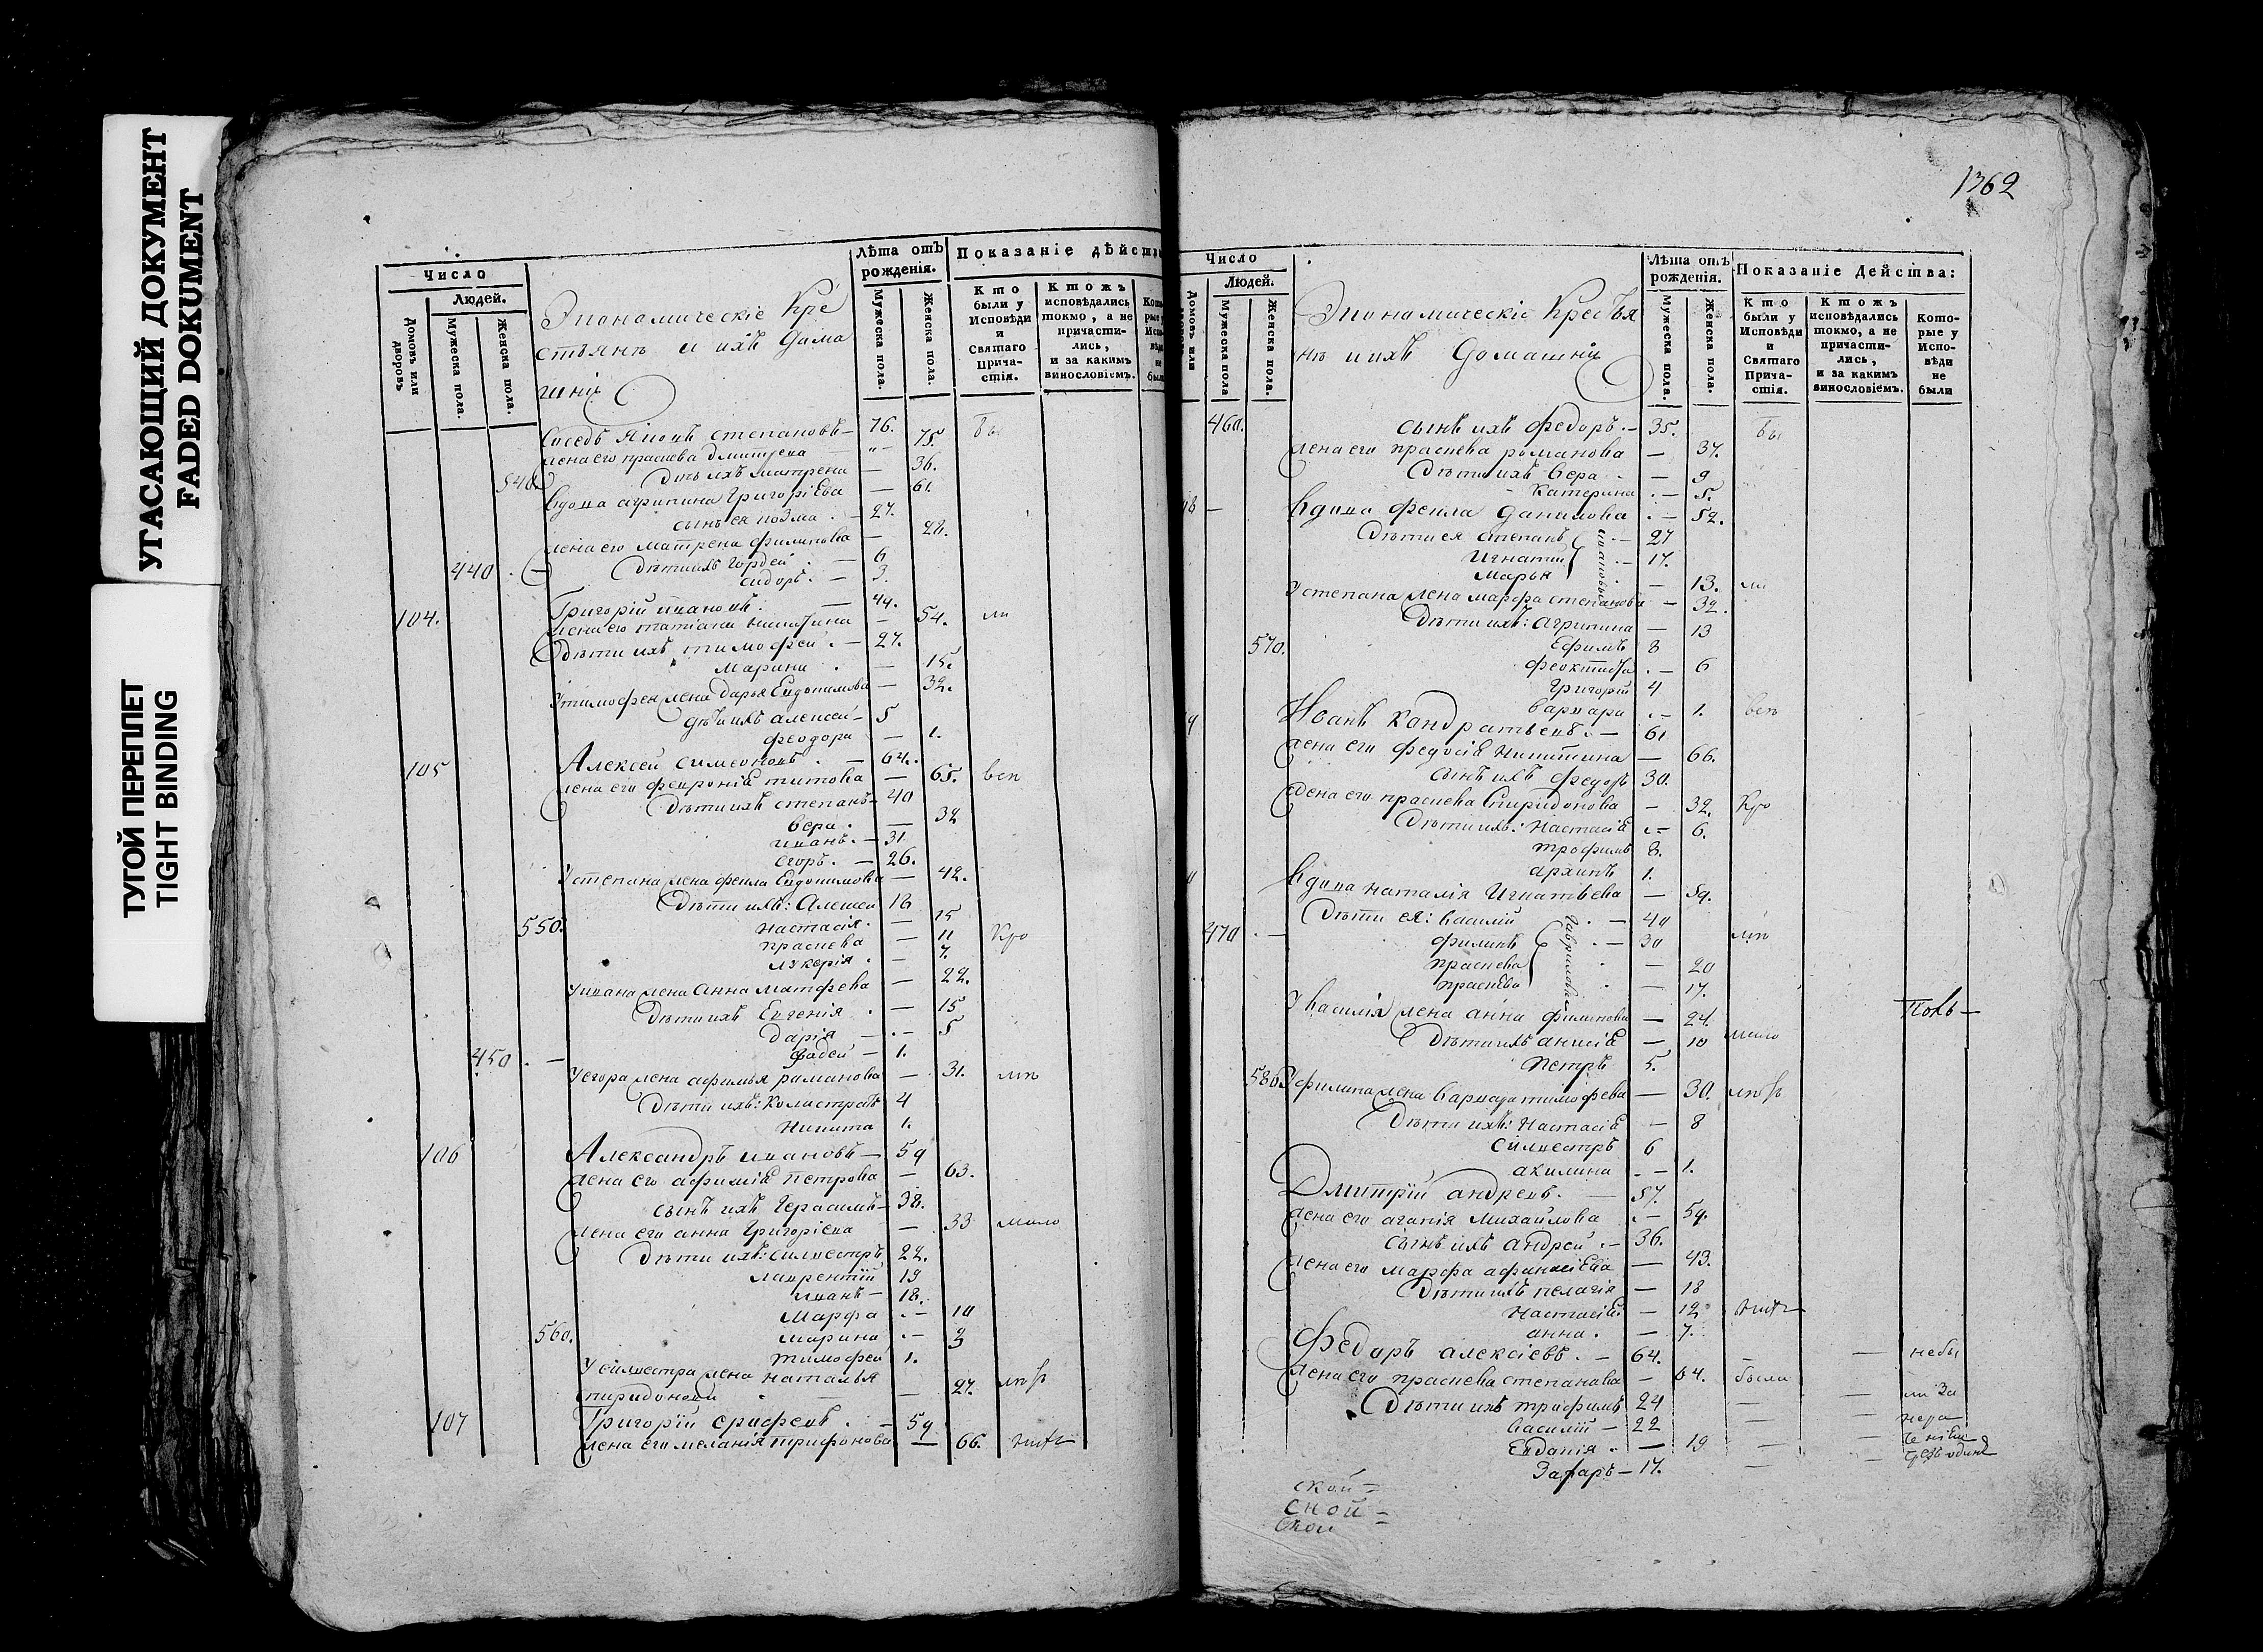 УГАСАЮЩИЙ ДОКУМЕНТ
FADED DOKUMENT
ТУГОЙ ПЕРЕПЛЕТ
TIGHT BINDING
Число
Людей.
Домовъ или дворовъ
Мужеска пола.
Женска пола.
Экономическіе Кре
стьянъ и ихъ дома
шніе
Лѣта отъ рожденія.
Мужеска пола.
Женска пола.
Показаніе дѣйств
Кто были у Исповѣди и Святаго Причастія.
Ктожъ исповѣдались токмо, а не причастились, и за какимъ винословіемъ.
Сосед Яковъ степановъ — 76. бы
жена его прасковa дмитрева — 75.
540. дочь ихъ матрена — 36.
вдова агрипина Григоріева — 61.
сынъ ея козма — 27.
жена его матрена филипова — 28.
440 . — Дѣти ихъ Гордей . — 6
сидоръ . — 3.
104. Григорій ивановъ . — 49. ли
жена его татиана никитина — 54.
Дѣти ихъ тимофей . — 27.
марина . — 15.
У тимофея жена дарья Евдокимова — 32.
дѣти ихъ алексей — 5
феодора — 1.
105 Алексей симеоновъ . — 64.
жена его феврониѣ титова — 65. всп
Дѣти ихъ степанъ — 40
вера . — 32
иванъ . — 31.
егоръ . — 26.
У степана жена фекла Евдокимова — 42.
Дѣти ихъ: Алексей 18
550. настасія . — 15
прасковa — 11 Кро
лукерія . — 7.
У ивана жена Анна матфева — 22.
Дѣти ихъ Евгенія . — 15
дарія — . — 5
450 . — фадей — 1.
У егора жена афимья раманова — 31. мп
Дѣти ихъ: Колистратъ 4
Никита 1.
106 Александръ ивановъ — 59
жена его афимиѣ петрова — 63.
сынъ ихъ Герасимъ — 38.
жена его анна Григоріева — 33 мало
Дѣти ихъ: силвестръ 22.
лаврентій 19
иванъ — 18.
марфа . — 10
560. марина . — 3
тимофей 1.
У силвестра жена наталья
спиридонова — 27. мпѣ
107 Григорій ерифеевъ . — 59
жена его меланія трифонова — 66.
1362
Число
Людей.
Домовъ или
Мужеска пола
Женска пола.
Экономическіе Крестья
нъ и ихъ домашніи
Лѣта отъ рожденія.
Мужеска пола.
Женска пола.
Показаніе Дейсшва:
Кто были у Исповѣди и Святаго Причастія.
Ктожъ исповѣдались токмо, а не причастились, и за какимъ винословіемъ.
Которые у Исповѣди не были
460. сынъ ихъ федоръ . — 35. бы
жена его прасковa романова — 37.
Дѣти ихъ вера . — 9
Катерина . — 5.
вдова фекла данилова . — 52.
Дѣти ея степанъ . — 27
Игнатий . — 17.
Марья . — 13. ли
ивановы
У степана жена марфа степанова — 32.
Дѣти ихъ: агрипина — 13
570. Ефимъ 8
феоктиста . — 6
григорій 4
варвара . — 1. всп
Иванъ Кондратьевъ . — 61
жена его федосіѣ никитина — 66.
сынъ ихъ федоръ 30.
жена его прасковa Спиридонова — 32. Кро
Дѣти ихъ: настасіѣ . — 6.
трофимъ 8.
архипъ 1.
вдова наталія Игнатьева — 59.
Дѣти ея: василій . — 40
470 . — филипъ . — 30 мп
прасковa . — 20
прасковa . — 17.
Гавриловы
У василія жена анна филипова — 24. Полѣ —
Дѣти ихъ анисіѣ — 10 мало
Петръ 5.
580. У филипа жена варвара тимофева — 30. мпѣ
Дѣти ихъ: Настасіѣ — 8
силвестръ 6
акилина . — 1.
Дмитрій андреевъ . — 57.
жена его агапія михайлова . — 59.
сынъ ихъ андрей . — 36.
жена его марфа афанасіева — 43.
Дѣти ихъ пелагія — 18
настасіѣ — 12
анна . — 7.
Федоръ алексіевъ . — 64. — — небы
жена его прасковa степанова — 64. были — ли За
Дѣти ихъ трифимъ 24 — — нера
василій — 22 — — ченіем
Евдокія . — 19 —
Захаръ — 17. — —
ской =
сной =
ской